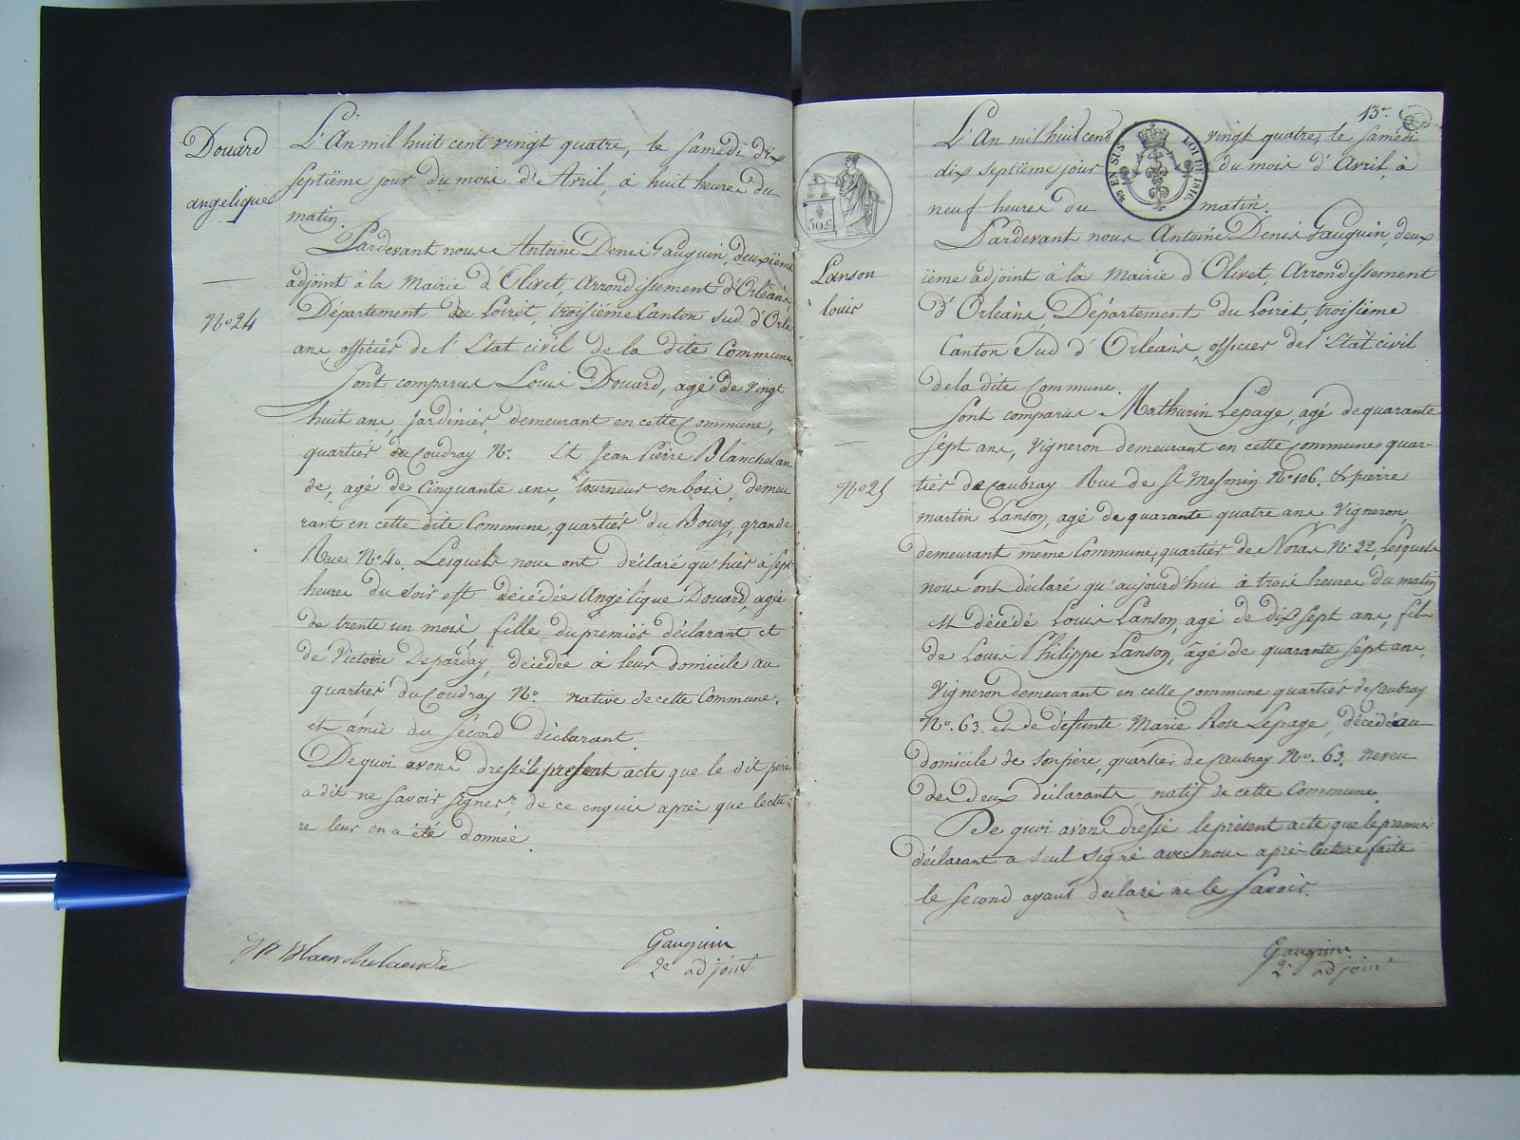 Douard
angelique
No 24
L'An mil huit cent vingt quatre, le samedi dix
septième jour du mois d'Avril, à huit heures du
matin.
Pardevant nous Antoine Denis Gauguin, deuxième
adjoint à la Mairie d'Olivet, Arrondissement d'Orléans,
Département du Loiret, troisième Canton Sud d'Orlé
ans, officier de l'Etat civil de la dite Commune.
Sont comparus Louis Douard, agé de vingt
huit ans, Jardinier, demeurant en cette Commune,
quartier du Coudray No. Et Jean Pierre Blanchelan
de, agé de Cinquante ans, tourneur en bois, demeu
rant en cette dite Commune, quartier du Bourg, grande
Rue No 40. Lesquels nous ont déclaré qu'hier à sept
heures du soir est décédée Angélique Douard, agée
de trente un mois, fille du premier déclarant et
de Victoire Deparday, décédée à leur domicile au
quartier du Coudray No. native de cette Commune.
et amie du second déclarant.
De quoi avons dressé le présent acte que le dit père
a dit ne savoir signer, de ce enquis après que lectu-
re leur en a été donnée.
JP Blanchelande
Gauguin
2e adjoint
13
Lanson
louis
No 25
L'An mil huit cent vingt quatre, le samedi
dix septième jour du mois d'Avril, à
neuf heures du matin.
EN SUS
LOI DE 1816
Pardevant nous Antoine Denis Gauguin, deux
ième adjoint à la Mairie d'Olivet, Arrondissement
d'Orléans, Département du Loiret, troisième
Canton Sud d'Orléans, officier de l'Etat civil
de la dite Commune.
Sont comparus Mathurin Lepage, agé de quarante
sept ans, Vigneron demeurant en cette commune quar-
tier de Caubray Rue de St Mesmin No 106. & pierre
martin Lanson, agé de quarante quatre ans Vigneron
demeurant même Commune, quartier de Noras No 32, Lesquels
nous ont déclaré qu'aujourd'hui à trois heures du matin
est décédé Louis Lanson, agé de dix sept ans, fils
de Louis Philippe Lanson, agé de quarante sept ans,
Vigneron demeurant en cette commune quartier de Caubray
No. 63. et de défunte Marie Rose Lepage, décédé au
domicile de son père, quartier de Caubray No. 63. neveu
des deux déclarants natif de cette Commune.
De quoi avons dressé le présent acte que le premier
déclarant a seul signé avec nous après lecture faite
le second ayant déclaré ne le savoir.
Gauguin
2e adjoint